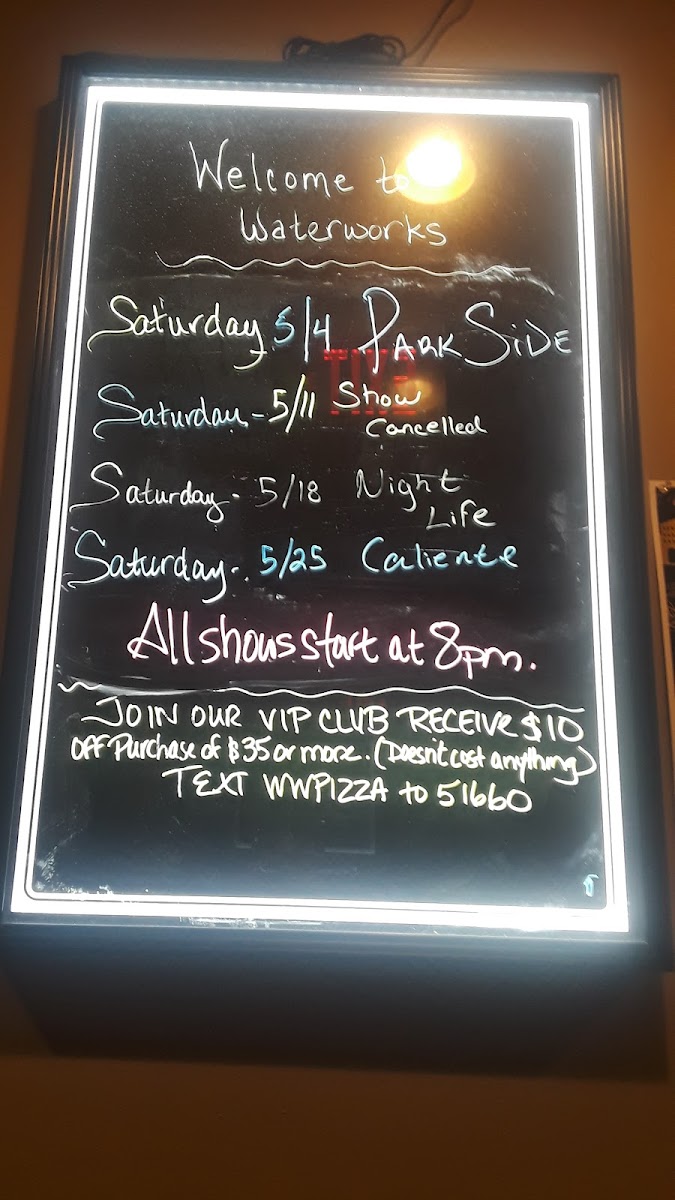 Welcome to
Waterworks
Saturday 5/4 PARK SiDE
Saturday - 5/11 Show
Cancelled
Saturday - 5/18 Night
Life
Saturday - 5/25 Caliente
All shows start at 8pm.
JOIN OUR VIP CLUB RECEIVE $10
OFF Purchase of $35 or more. (Doesn't cost anything)
TEXT WWPIZZA to 51660